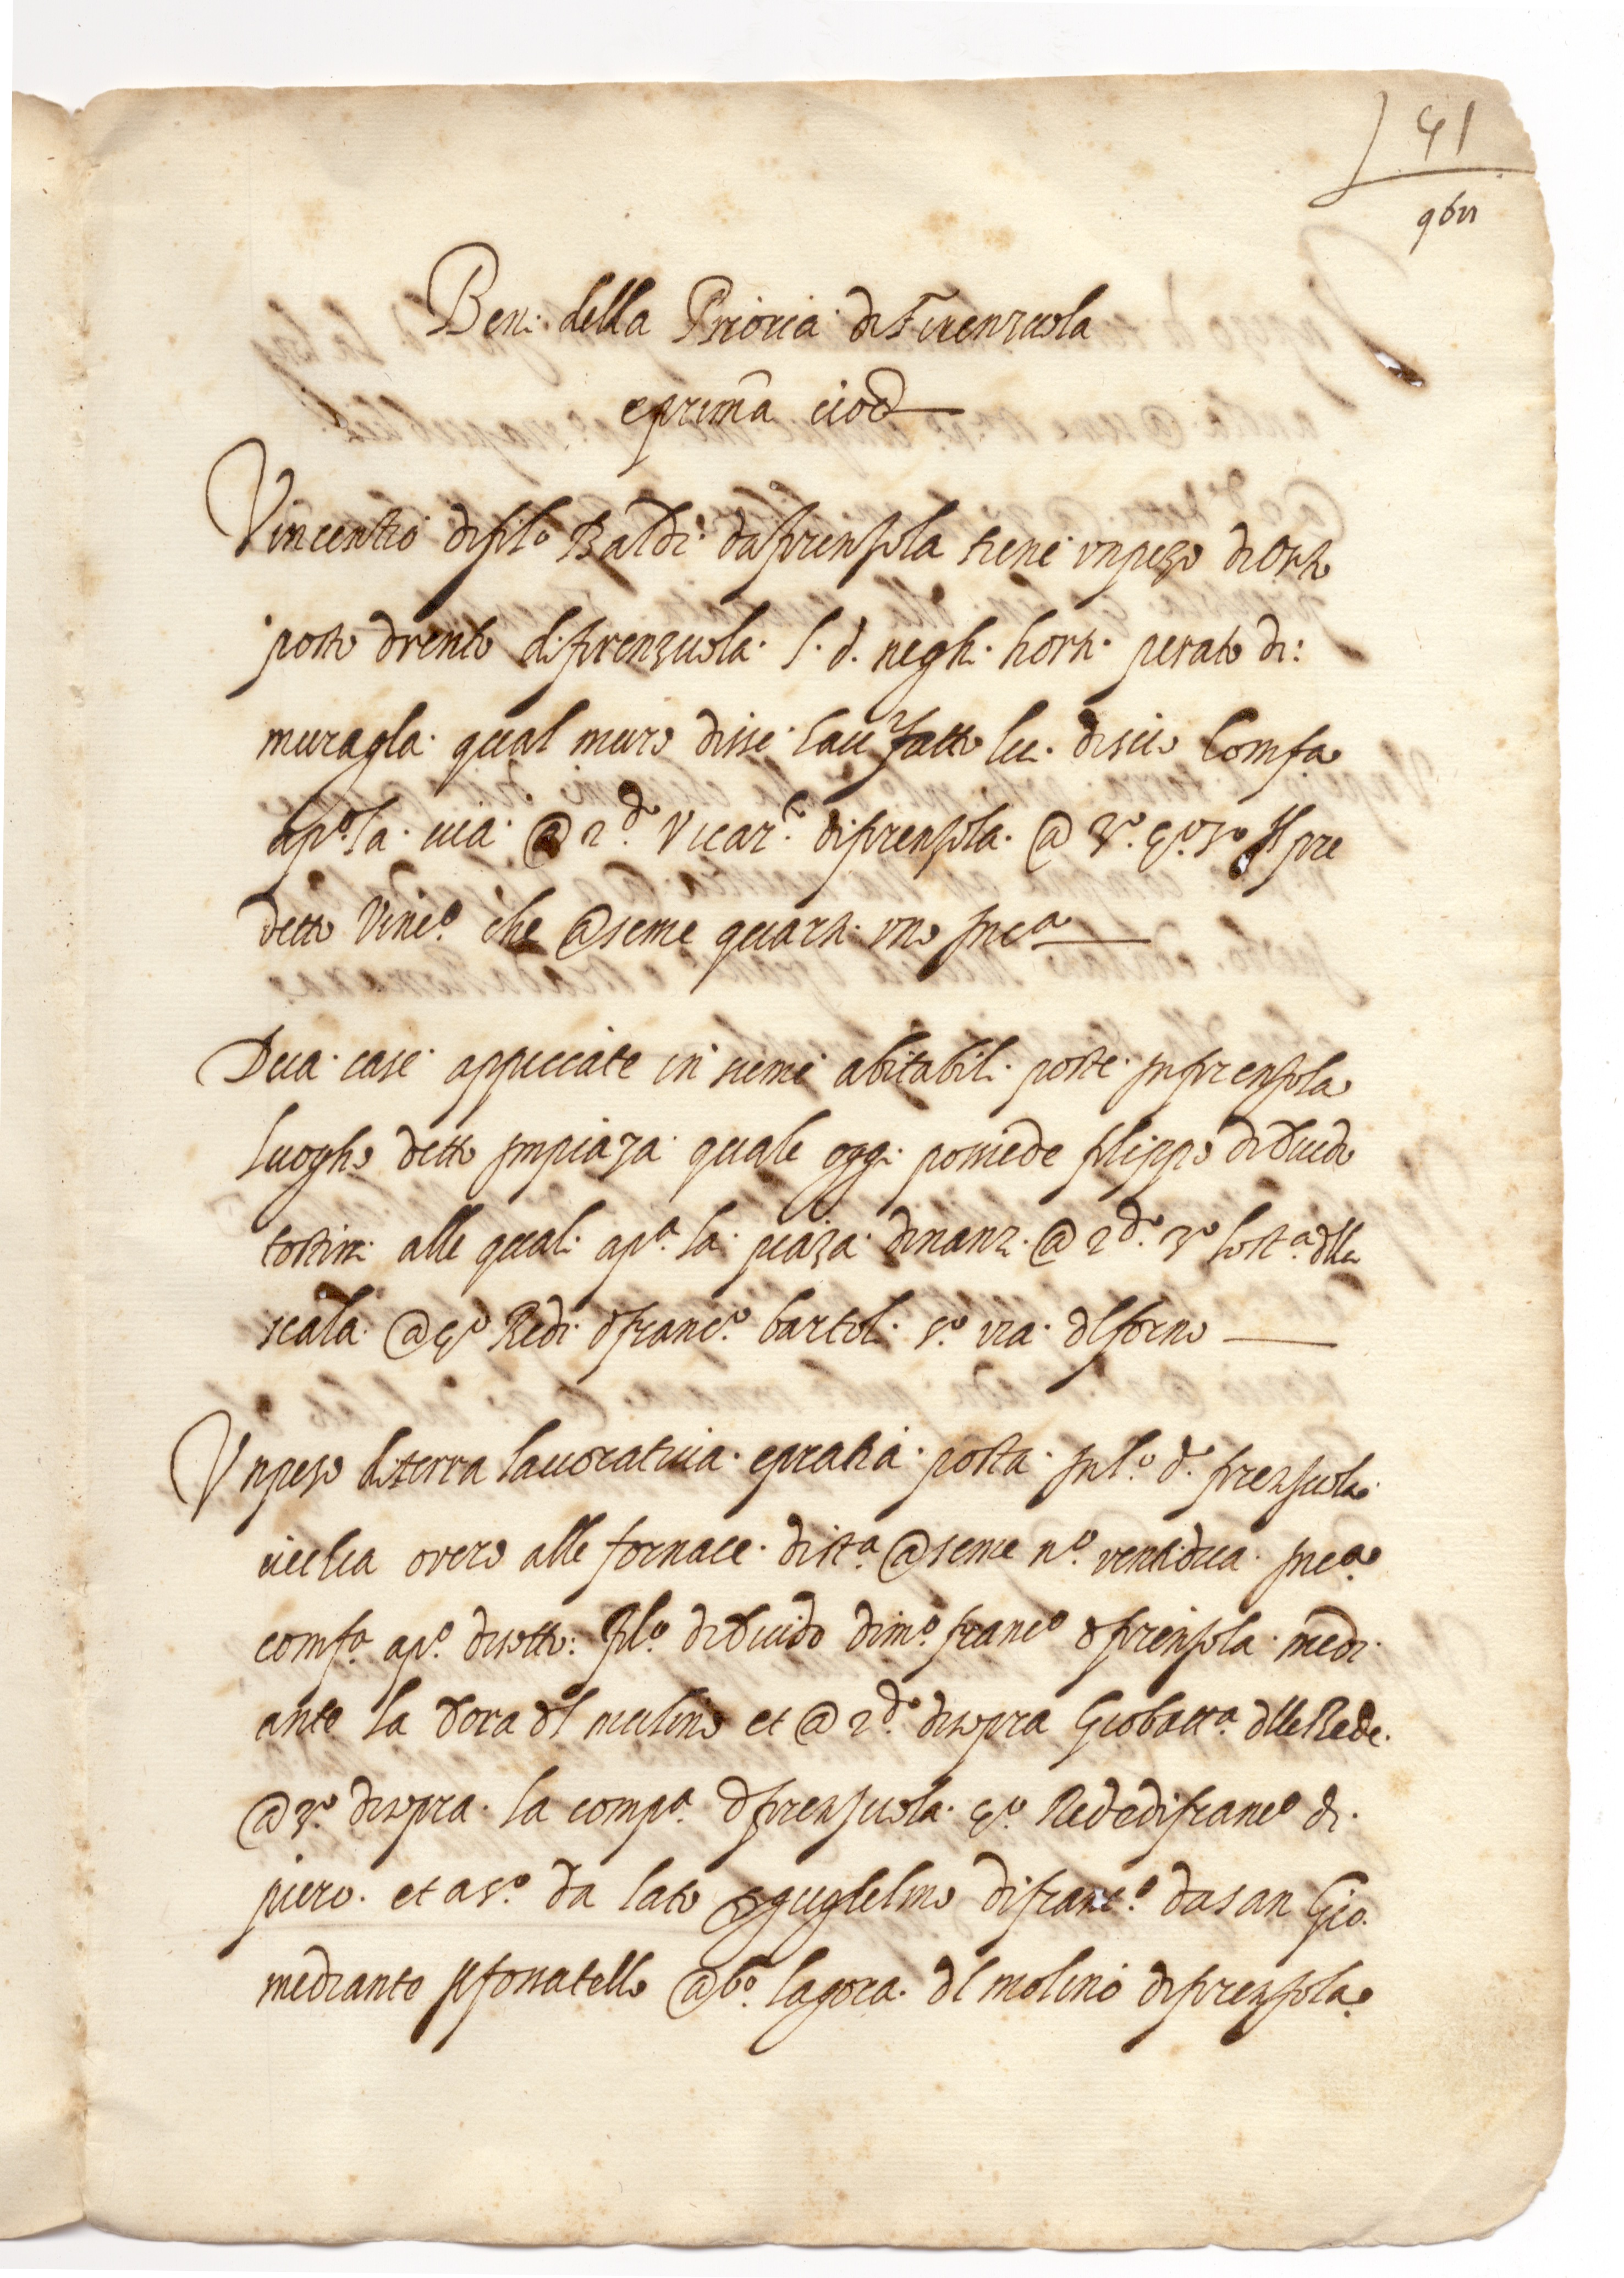 41
Beni della Prioria di Firenzuola
e prima cioe
Vincentio di fil.o Baldi da firenzola tiene un pezo di Orto
posto drento di firenzuola l. d. negli horti serato di
muraglia qual muro disse haver fatto lui di suo Comfa
a p.o la via @ 2.do Vicar.o di firenzola @ 3.o 4.o 5.o Il pre
detto Vinc.o che @ seme quarti uno in c.a
Dua case appiccate in sieme abitabili poste in firenzola
luogho detto in piaza quale oggi possiede filippo di Guido
tostini alle quali a p.a la piaza dinanzi @ 2.do 3.o l ost.a della
scala @ 4.o Redi di franc.o bartoli 5.o via del forno
Un pezo di terra lavorativa e pratia posta in l.o d.o firenzuola
vechia overo alle fornace di st.a @ seme n.o ventidua in c.a
comf.a a p.o disotto fil.o di Guido di m.o franc.o di firenzola medi
ante la Gora del mulino et @ 2.do disopra Giobatt.a delle Rede
@ 3.o disopra la comp.a di firenzuola 4.o Rede di franc.o di
piero et a 5.o da lato guglielmo di franc.o da san Gio.
mediante il fossatello @ 6.o la gora del molino di firenzola